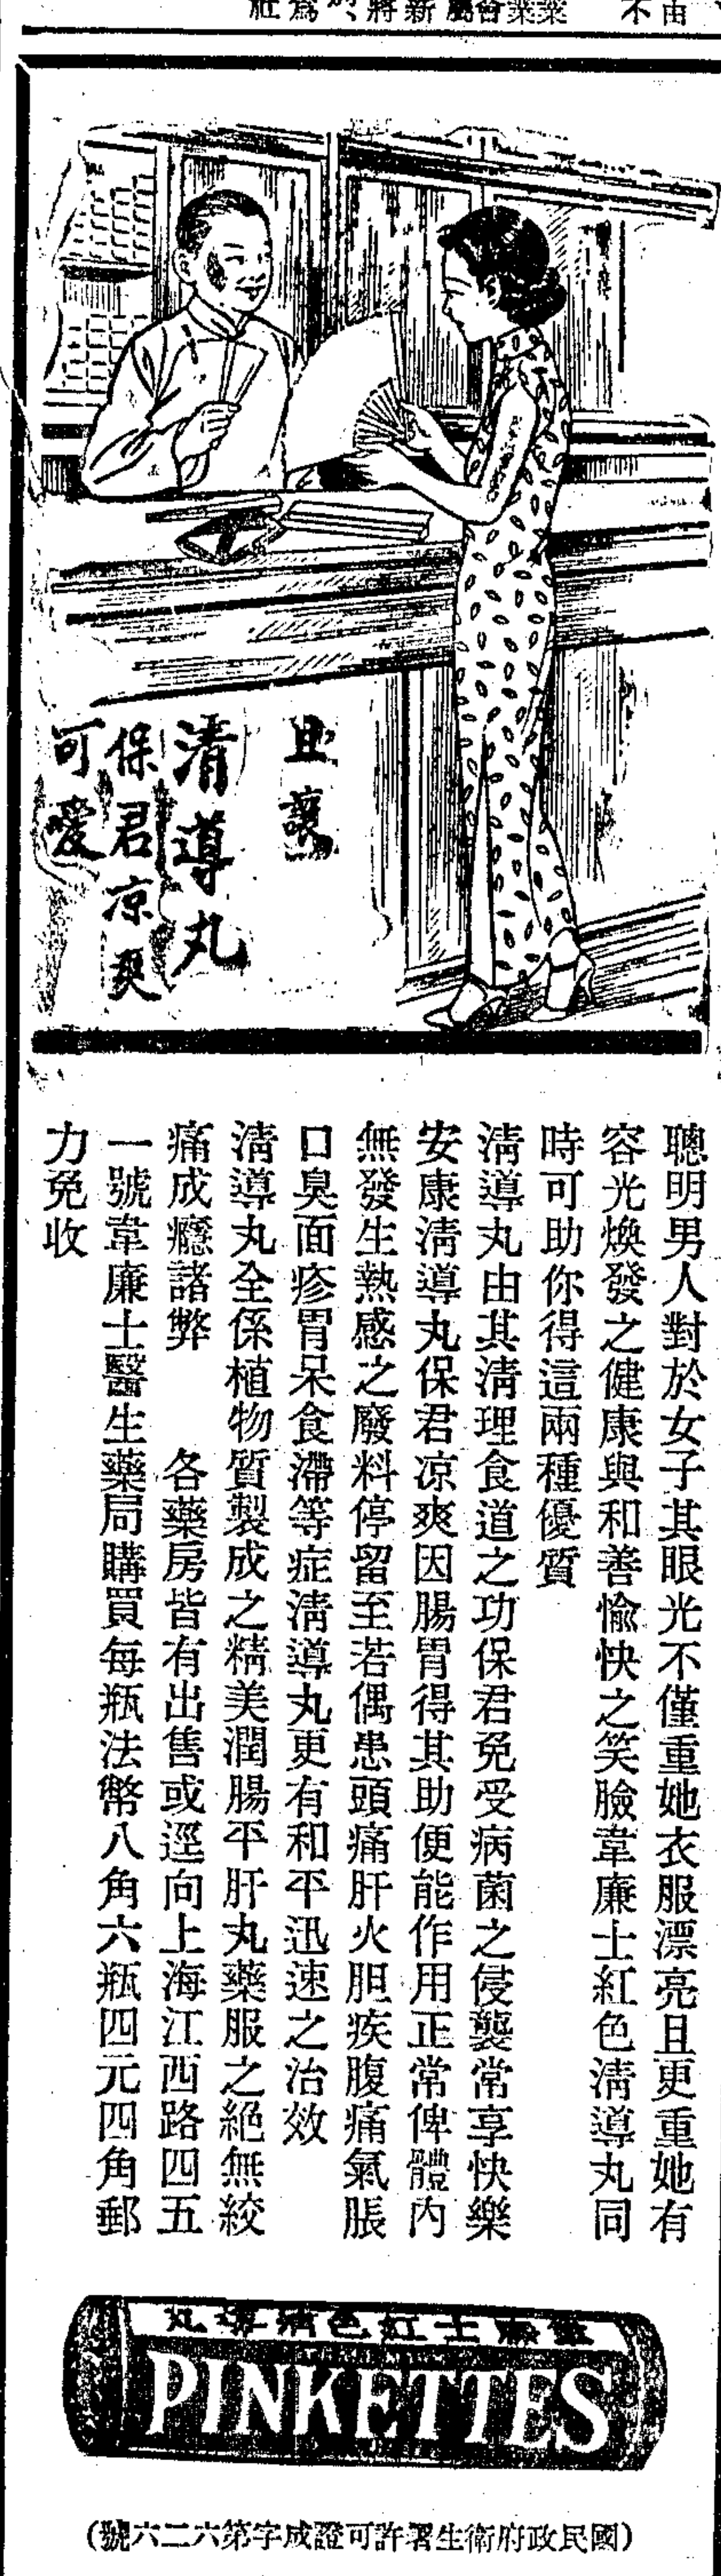 且讓
清導丸
保君凉爽
可愛
聰明男人對於女子其眼光不僅重她衣服漂亮且更重她有
容光煥發之健康與和善愉快之笑臉韋廉士紅色清導丸同
時可助你得這兩種優質
清導丸由其清理食道之功保君免受病菌之侵襲常享快樂
安康清導丸保君凉爽因腸胃得其助便能作用正常俾體內
無發生熱感之廢料停留至若偶患頭痛肝火胆疾腹痛氣脹
口臭面疹胃呆食滯等症清導丸更有和平迅速之治效
清導丸全係植物質製成之精美潤腸平肝丸藥服之絕無絞
痛成癮諸弊　各藥房皆有出售或逕向上海江西路四五
一號韋廉士醫生藥局購買每瓶法幣八角六瓶四元四角郵
力免收
韋廉士紅色清導丸
PINKETTES
(國民政府衛生署許可證成字第六二六號)